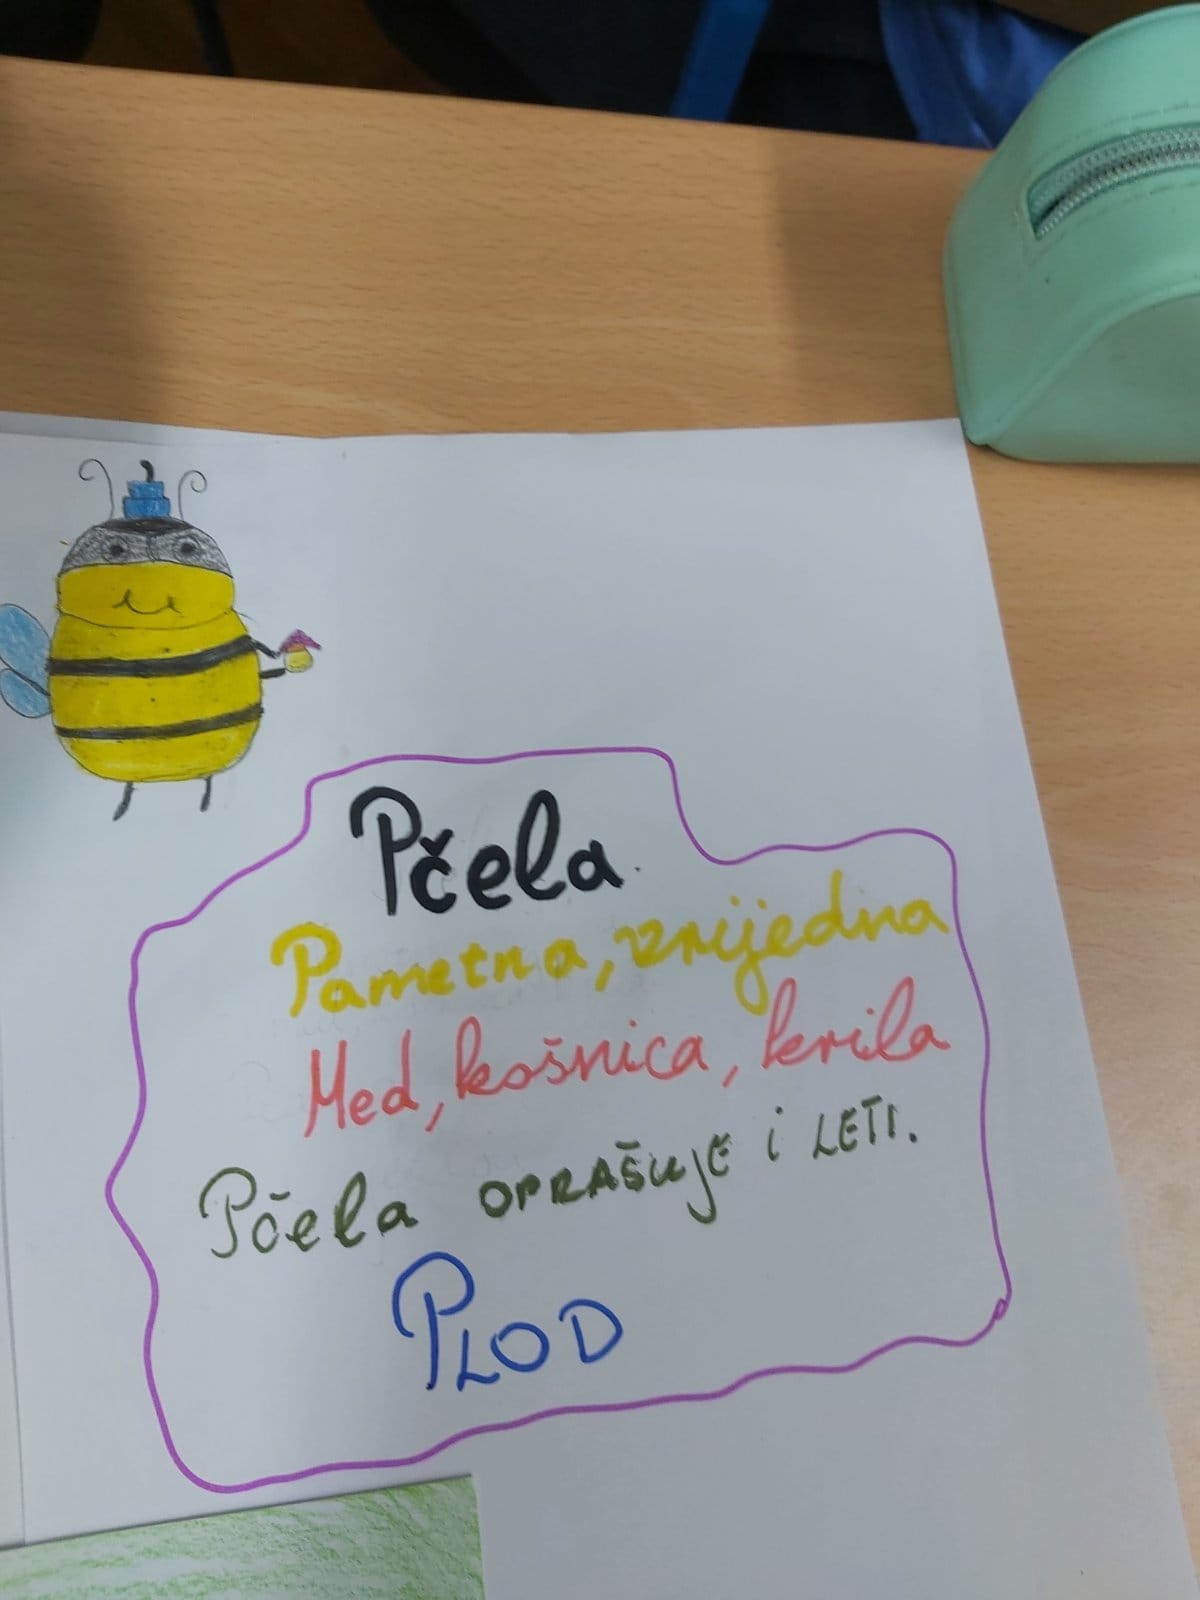 Pčela
Pametna, vrijedna
Med, košnica, krila
Pčela OPRAŠUJE i LETI.
PLOD